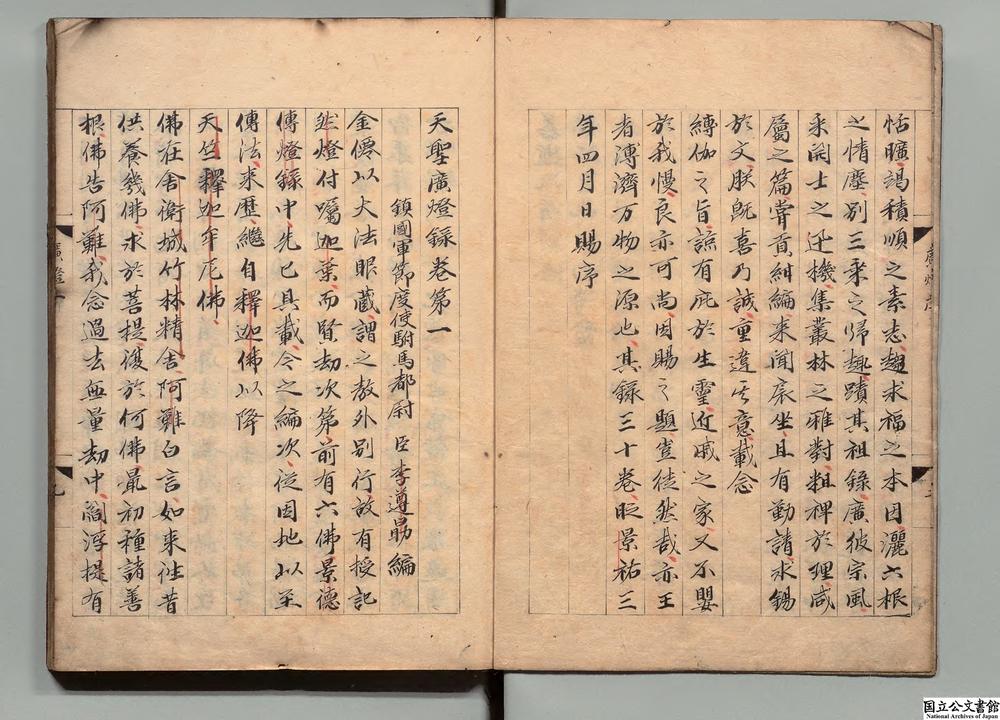 恬曠竭積順之素志趣求福之本因灑六根
之情塵別三乘之歸趣蹟其祖錄廣彼宗風
采開士之迅機集叢林之雅對粗裨於理咸
屬之篇嘗貢紺編來聞扆坐且有勤請求錫
於文朕既喜乃誠重違其意載念
縛伽之旨諒有庇於生靈近戚之家又不嬰
於我慢良亦可尚因賜之題豈徒然哉亦王
者溥濟万物之源也其錄三十卷旹景祐三
年四月日賜序
天聖廣燈錄卷第一
鎮國軍節度使駙馬都尉 臣李遵勗編
金僊以大法眼藏謂之教外別行故有授記
然燈付囑迦葉而賢劫次第前有六佛景德
傳燈錄中先已具載今之編次從因地以至
傳法來歷繼自釋迦佛以降
天竺釋迦牟尼佛
佛在舍衛城竹林精舍阿難白言如来往昔
供養幾佛求於菩提復於何佛最初種諸善
根佛告阿難我念過去無量劫中閻浮提有
廣燈序
廣燈一
九
国立公文書館
National Archives of Japan